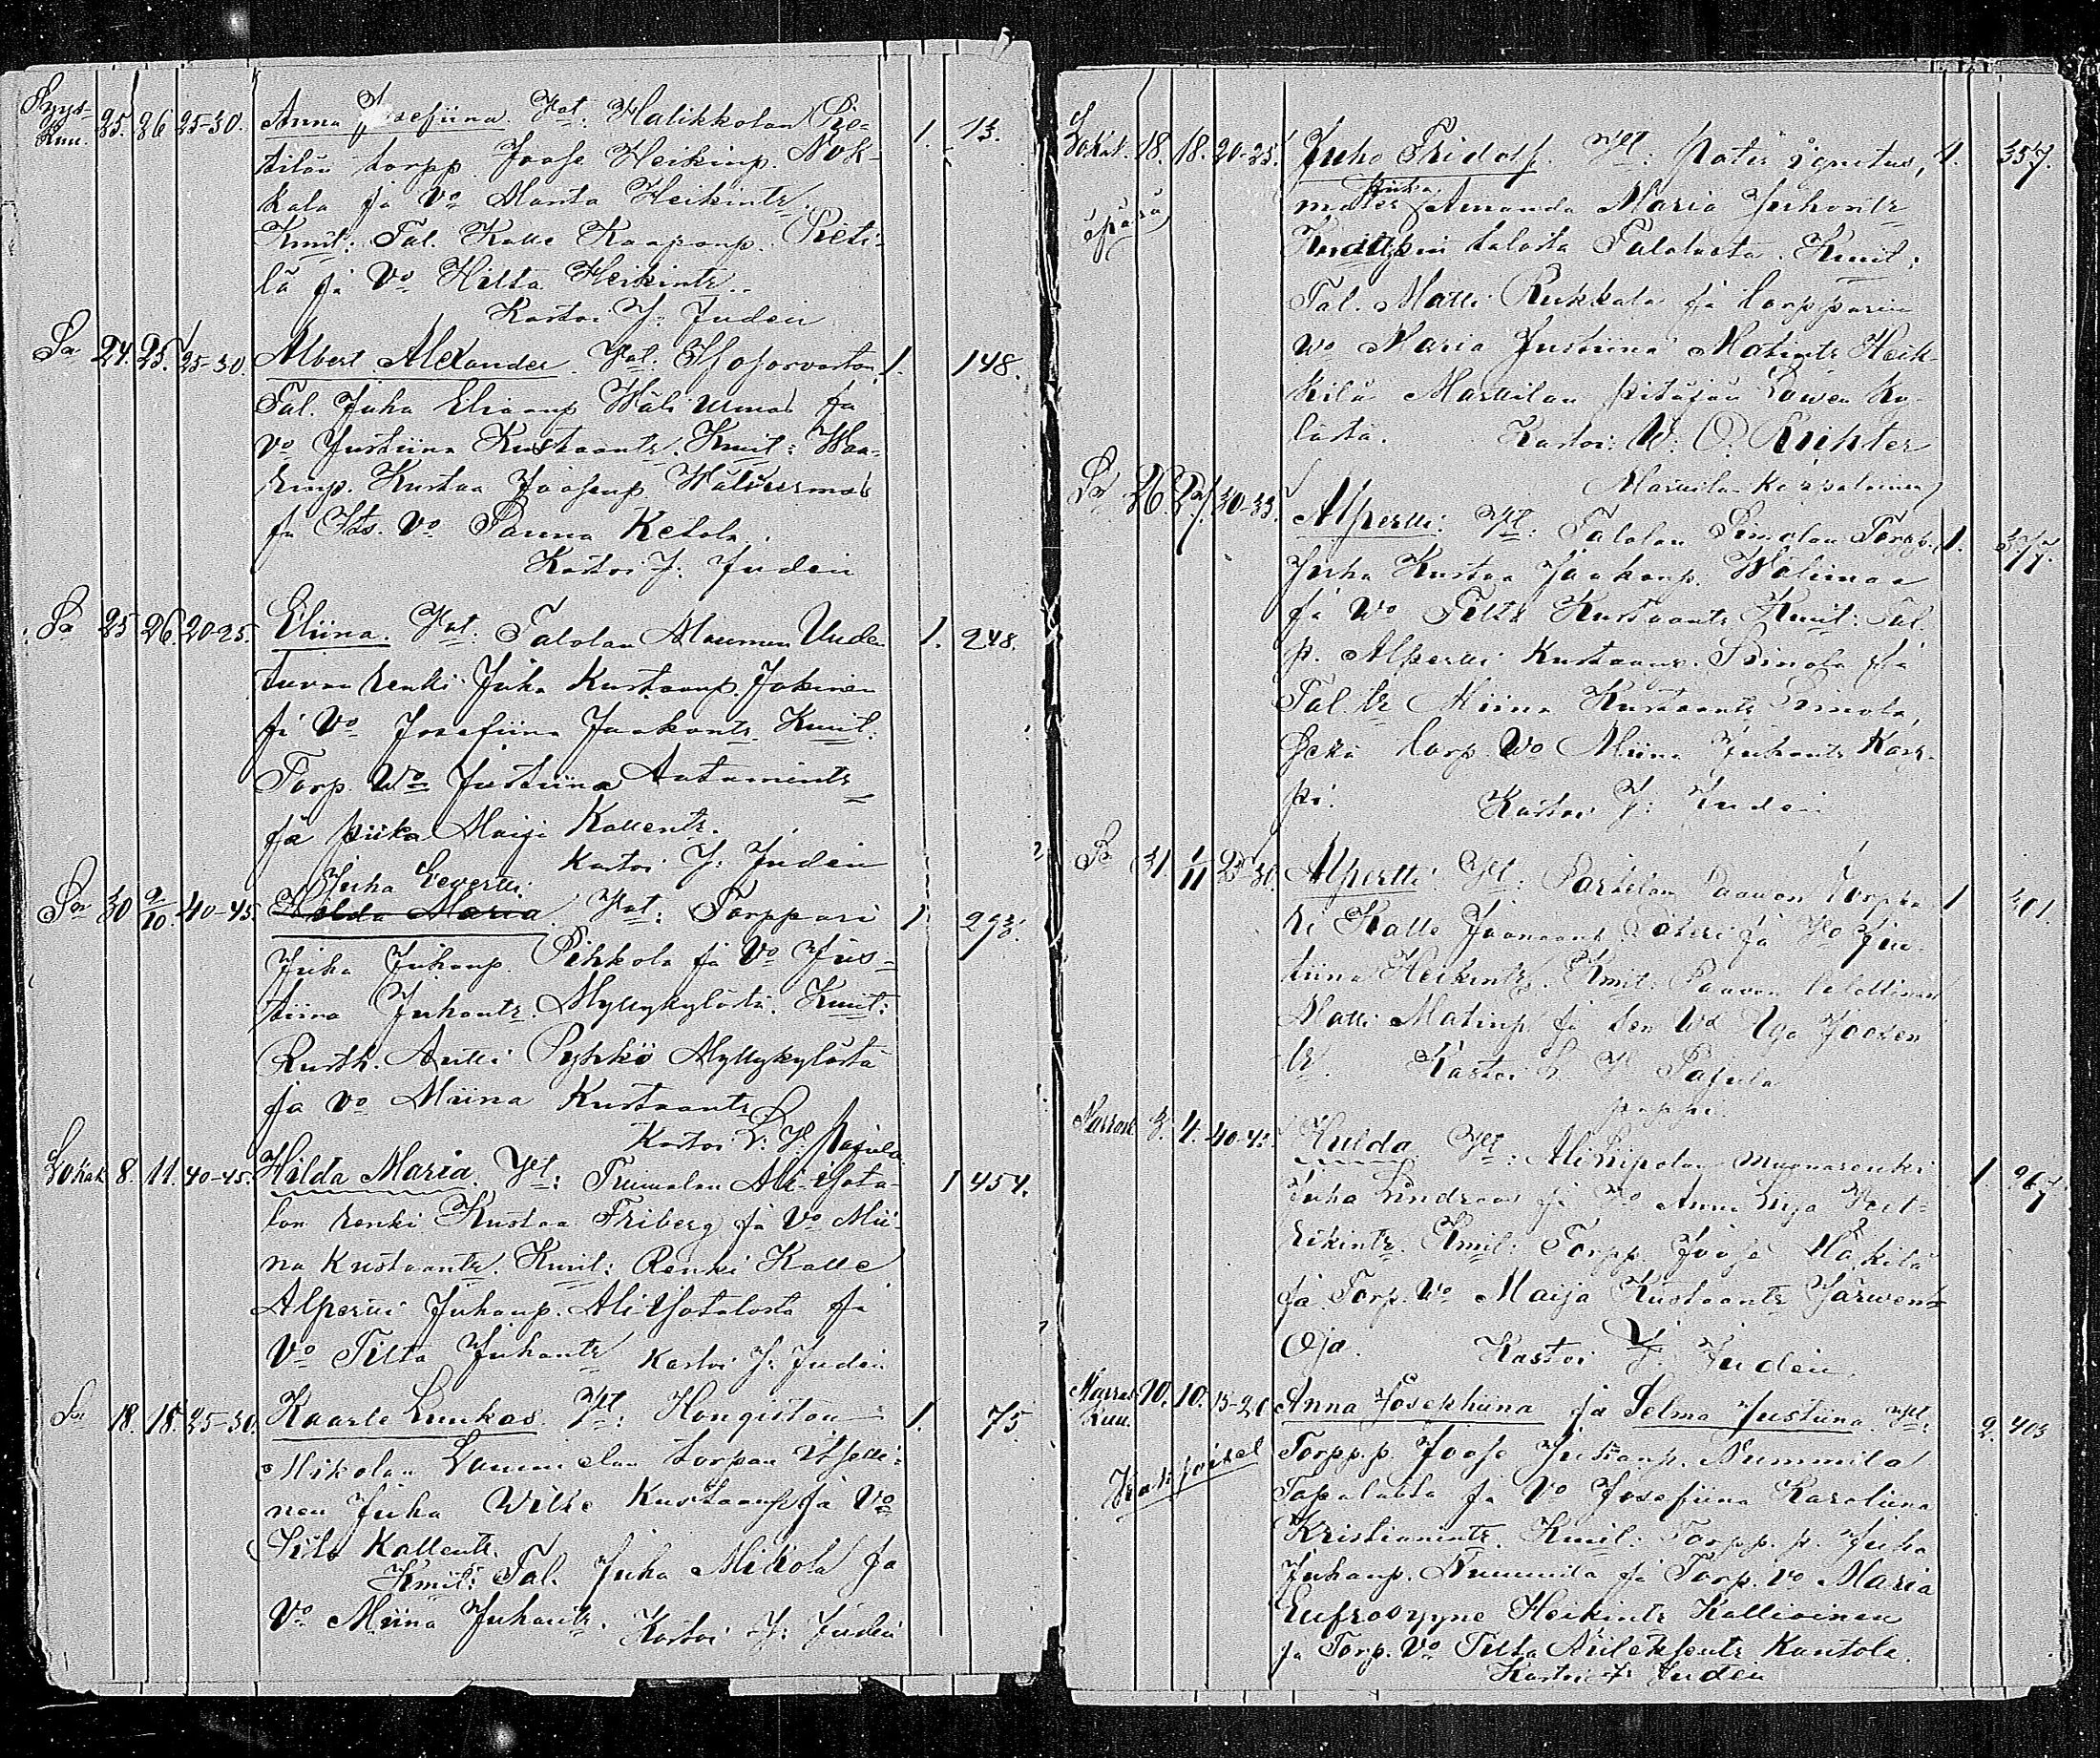 Syys-
Kuu. 25. 26 25-30. Anna Josefiina. Vat: Halikkolan Pie- 1. 13.
tilän torpp. Joose Heikinp. Nok-
kala ja Vo Manta Heikintr.
Kmit: Tal. Kalle Kaaponp. Pieti-
lä ja Vo Hilta Heikintr.
Kastoi J. Juden
Sa 24. 25. 25-30. Albert Alexander. Vat. 1. 148.
Tal. Juha Eliaanp Wälimaa ja
Vo Justiina Kustaantr. Kmit: Waa-
rinp. Kustaa Joosenp. Wälimaa
ja Its. Vo Panna Ketola.
Kastoi J. Juden
Sa 25 26. 20-25. Eliina. Vat: Talolan Maunun Uuden 1. 248.
tuvan renki Juha Kustaanp. Jokinen
ja Vo Josefiina Jaakontr. Kmit:
Torp. Vo Justiina Aatamintr
ja piika Maija Kallentr.
Kastoi J. Juden
Juha Eevertti.
Sa 30 2/10. 40-45. Hilda Maria. Vat: Torppari 1 293.
Juha Juhanp. Pihkola ja Vo Jus-
tiina Juhantr. Myllykylästä. Kmit:
Rusth. Antti Pyhkö Myllykylästä
ja Vo Miina Kustaantr.
Kastoi L. H. Pajula
Lokak 8. 11. 40-45. Hilda Maria. Vt: Tummolan Ali-Yota- 1 454.
lon renki Kustaa Friberg ja Vo Mii-
na Kustaantr. Kmit: Renki Kalle
Alpertti Juhanp. Ali Yotalosta ja
Vo Tilta Juhantr Kastoi J. Juden
Sa 18. 18. 25-30. Kaarle Luukas. Vt: Hongiston 1. 75
Mikolan Lammelan torpan itselli-
nen Juha Wilke Kustaanp ja Vo
Kallentr.
Kmit: Tal. Juha Mikola ja
Vo Miina Juhantr. Kastoi J. Juden
Lokak. 18. 18. 20-25. Juho Fridolf. Vt: Pater ignotus, 1. 357.
piika
äpärä mater Amanda Maria Juhontr
talosta Talolasta. Kmit:
Tal. Matti Rukkala ja torpparin
Wo Maria Justiina Matintr Heik-
kilä Marttilan pitäjän ky-
lästä. Kastoi: W. O. Richter
Marttilan Kappalainen
Sa 26. 27. 30-35. Alpertti: Vt: Talolan Simolan Torpp. 1. 377.
Juha Kustaa Jaakonp. Wälimaa
ja Wo Tilta Kustaantr Kmit: Tal.
p. Alpertti Kustaanp. Simola ja
Tal. tr Miina Kustaantr Simola,
sekä torp. Wo Miina Juhantr Karp-
pi. Kastoi J. Juden
Sa 31. 1/11 25-30. Alpertti Vt: Partelan Paavon torppa- 1 301.
ri Kalle ja Vo Jus-
tiina Heikintr. Kmit: Paavon
Matti Matinp ja sen Wo Joosen
tr. Kastoi L H Pajula
pappi.
Marrask 3. 4. 40-45. Hulda. Vt: Ali Sipolan muonarenki 1 267
Juha Lindroos ja Vo Anna Liisa Reet-
rikintr. Kmit: Torpp Joose
ja Torp. Wo Maija Kustaantr Järwen-
Oja. Kastoi J. Juden
Marras
Kuu. 10. 10. 15-20 Anna Josekhiina ja Selma Justiina. Vt: 2. 403
Kaksoiset Torpp.p. Joose Juhanp. Nummila
Topalasta ja Vo Josefiina Karoliina
Kristianintr. Kmit: Torpp. p. Juha
Juhanp. Nummila ja Torp. Vo Maria
Eufrosyyne Heikintr Kallioinen
ja Torp. Vo Tilta Kantola.
Kastoi J. Juden